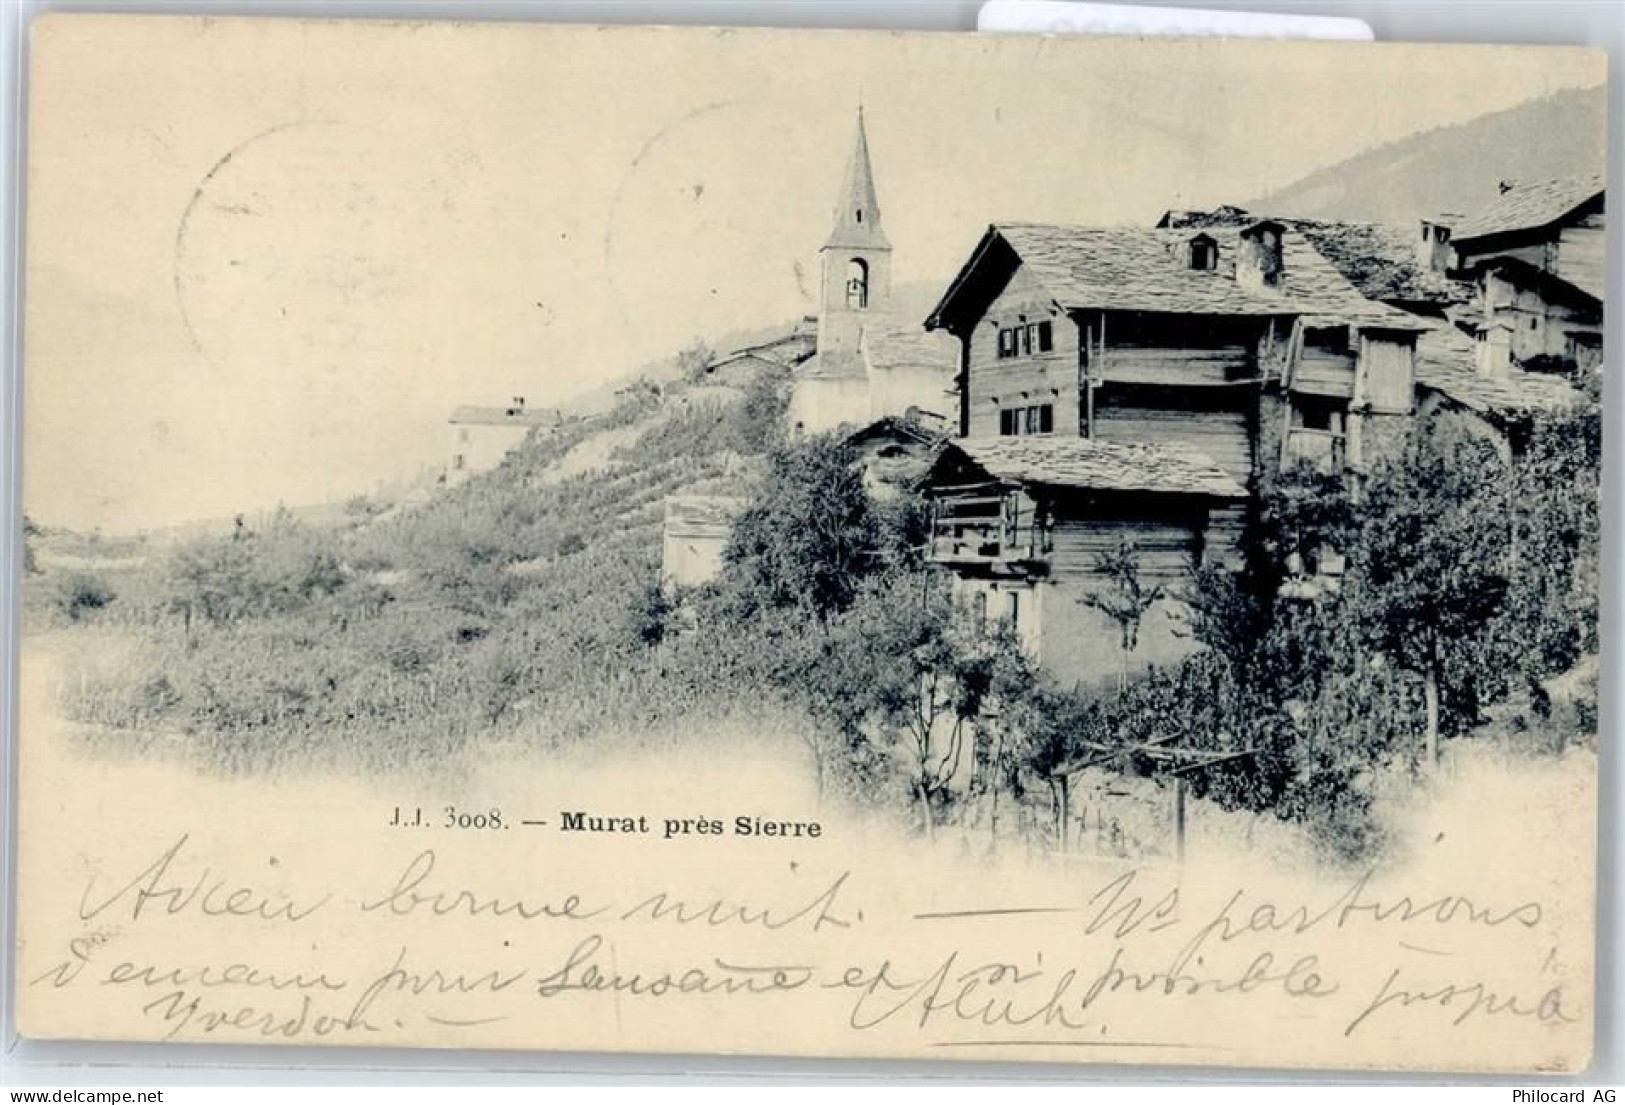 J.J. 3008. — Murat près Sierre
Adieu bonne nuit. — Ns partirons
demain pour Lausanne et si possible jusqu'à
Yverdon. —
www.delcampe.net
Philocard AG